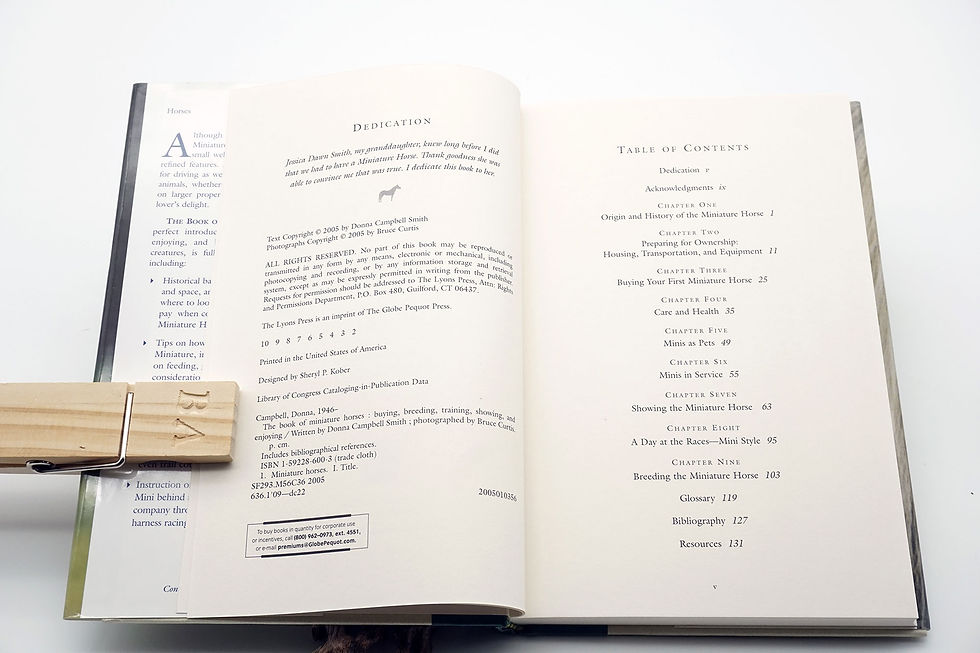 Horses
Although
Miniature
small wel
refined features.
for driving as we
animals, whether
on larger proper
lover's delight.
THE BOOK O
perfect introduc
enjoying, and
creatures, is full
including:
Historical ba
and space, ar
where to loo
pay when co
Miniature H
Tips on how
Miniature, i
on feeding,
consideratio
even trail co
Instruction o
Mini behind
company thre
harness racing
Con
DEDICATION
Jessica Dawn Smith, my granddaughter, knew long before I did
that we had to have a Miniature Horse. Thank goodness she was
able to convince me that was true. I dedicate this book to her.
Text Copyright © 2005 by Donna Campbell Smith
Photographs Copyright © 2005 by Bruce Curtis
ALL RIGHTS RESERVED. No part of this book may be reproduced or
transmitted in any form by any means, electronic or mechanical, including
photocopying and recording, or by any information storage and retrieval
system, except as may be expressly permitted in writing from the publisher.
Requests for permission should be addressed to The Lyons Press, Attn: Rights
and Permissions Department, P.O. Box 480, Guilford, CT 06437.
The Lyons Press is an imprint of The Globe Pequot Press.
10 9 8 7 6 5 4 3 2
Printed in the United States of America
Designed by Sheryl P. Kober
Library of Congress Cataloging-in-Publication Data
Campbell, Donna, 1946–
The book of miniature horses : buying, breeding, training, showing, and
enjoying / Written by Donna Campbell Smith ; photographed by Bruce Curtis.
p. cm.
Includes bibliographical references.
ISBN 1-59228-600-3 (trade cloth)
1. Miniature horses. I. Title.
SF293.M56C36 2005
636.1'09—dc22
2005010356
To buy books in quantity for corporate use
or incentives, call (800) 962–0973, ext. 4551,
or e-mail premiums@GlobePequot.com.
TABLE OF CONTENTS
Dedication v
Acknowledgments ix
CHAPTER ONE
Origin and History of the Miniature Horse 1
CHAPTER TWO
Preparing for Ownership:
Housing, Transportation, and Equipment 11
CHAPTER THREE
Buying Your First Miniature Horse 25
CHAPTER FOUR
Care and Health 35
CHAPTER FIVE
Minis as Pets 49
CHAPTER SIX
Minis in Service 55
CHAPTER SEVEN
Showing the Miniature Horse 63
CHAPTER EIGHT
A Day at the Races—Mini Style 95
CHAPTER NINE
Breeding the Miniature Horse 103
Glossary 119
Bibliography 127
Resources 131
v